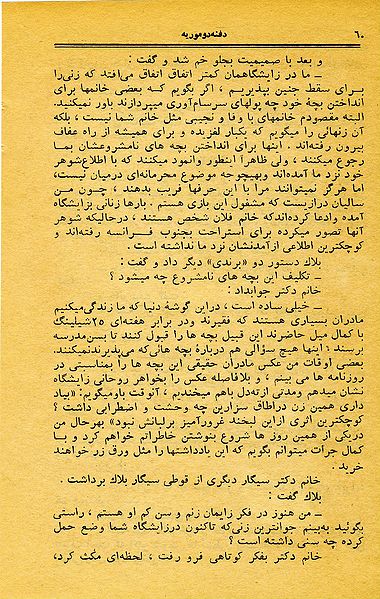 ۶۰
دفنه دوموریه
و بعد با صمیمیت بجلو خم شد و گفت :
ــ ما در زایشگاهمان کمتر اتفاق اتفاق می‌افتد که زنی‌را
برای سقط جنین بپذیریم ، اگر بگویم کـه بعضی خانمها برای
انداختن بچهٔ خود چه پولهای سرسام‌آوری میپردازند باور نمیکنید.
البته مقصودم خانمهای با وفا و نجیبی مثل خانم شما نیست ، بلکه
آن زنهائی را میگویم که یکبار لغزیده و برای همیشه از راه عفاف
بیرون رفته‌اند . اینها برای انداختن بچه های نامشروعشان بما
رجوع میکنند ، ولی ظاهراً اینطور وانمود میکنند که با اطلاع شوهر
خود نزد ما آمده‌اند وبهیچوجه موضوع محرمانه‌ای درمیان نیست،
اما هرگز نمیتوانند مرا با این حرفها فریب بدهند ، چون من
سالیان درازیست که مشغول این بازی هستم . بارها زنانی بزایشگاه
آمده وادعا کرده‌اندکه خانم فلان شخص هستند ، درحالیکه شوهر
آنها تصور میکرده برای استراحت بجنوب فرانسه رفته‌اند و
کوچکترین اطلاعی ازآمدنشان نزد ما نداشته است .
بلاك دستور دو «برندی» دیگر داد و گفت :
ــ تکلیف این بچه های نامشروع چه میشود ؟
خانم دکتر جوابداد :
ــ خیلی ساده است ، دراین گوشهٔ دنیا که ما زندگی‌میکنیم
مادران بسیاری هستند که فقیرند ودر برابر هفته‌ای ۲۵شیلینگ
با کمال میل حاضرند این قبیل بچه ها را قبول کنند تا بسن‌مدرسه
برسند ؛ اینها هیچ سؤالی هم دربارهٔ بچه هائی‌که می‌پذیرندنمیکنند.
بعضی اوقات من عکس مادران حقیقی این بچه ها را بمناسبتی در
روزنامه ها می بینم ، و بلافاصله عکس را بخواهر روحانی زایشگاه
نشان میدهم ومدتی ازته‌دل باهم میخندیم ، آنوقت باومیگویم: «بیاد
داری همین زن دراطاق سزارین چه وحشت و اضطرابی داشت ؟
کوچکترین اثری ازاین لبخند غرورآمیز برلبانش نبود» بهرحال من
دریکی از همین روز ها شروع بنوشتن خاطراتم خواهم کرد و با
کمال جرات میتوانم بگویم که این یادداشتها را مثل ورق زر خواهند
خرید .
خانم دکتر سیگار دیگری از قوطی سیگار بلاك برداشت .
بلاك گفت :
ــ من هنوز در فکر زایمان زنم و سن کم او هستم ، راستی
بگوئید به‌بینم جوانترین زنی‌که تاکنون درزایشگاه شما وضع حمل
کرده چه سنی داشته است ؟
خانم دکتر بفکر کوتاهی فرو رفت ، لحظه‌ای مکث کرد،